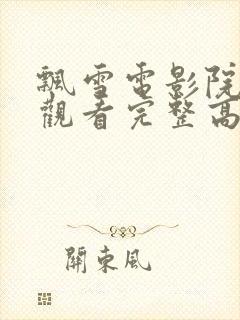 飄雪電影院
觀看完整高
關東風